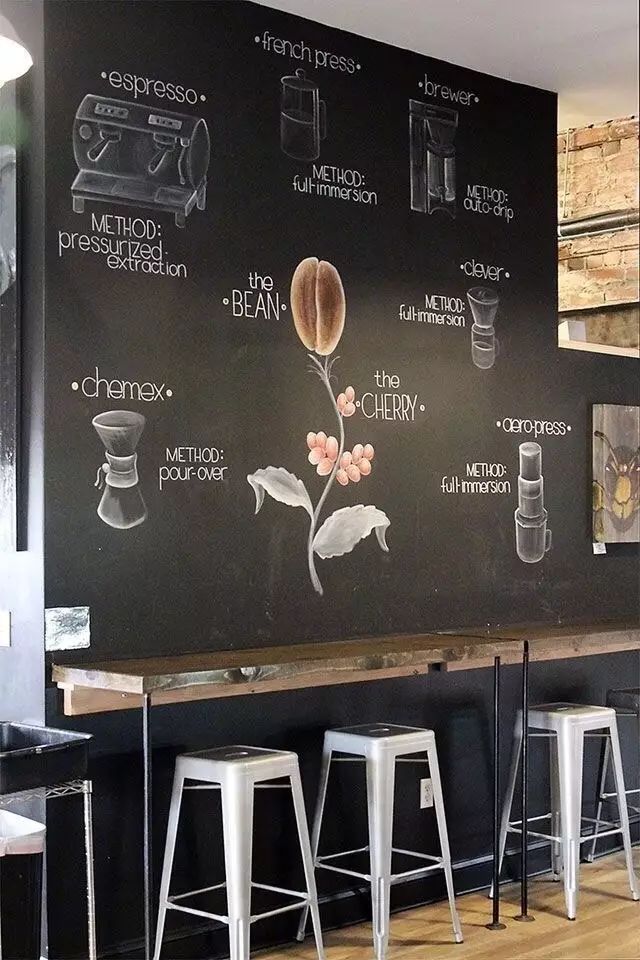 •french press•
•espresso•
•brewer•
METHOD:
full-immersion
METHOD:
auto-drip
METHOD:
pressurized
extraction
the
•BEAN•
•clever•
METHOD:
full-immersion
•chemex•
the
•CHERRY•
METHOD:
pour-over
•aero-press•
METHOD:
full-immersion